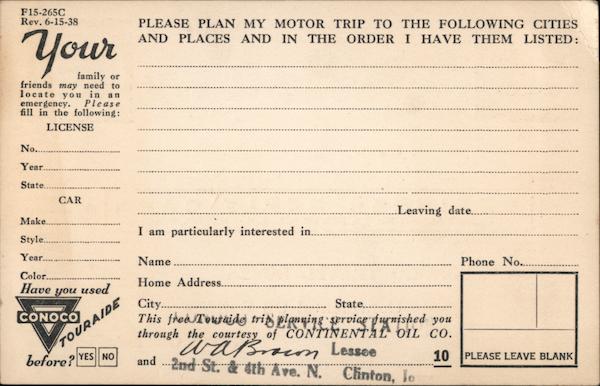 F15-265C
Rev. 6-15-38
Your
family or
friends may need to
locate you in an
emergency. Please
fill in the following:
LICENSE
No.
Year
State
CAR
Make
Style
Year
Color
Have you used
CONOCO
TOURAIDE
before? YES NO
PLEASE PLAN MY MOTOR TRIP TO THE FOLLOWING CITIES
AND PLACES AND IN THE ORDER I HAVE THEM LISTED:
Leaving date
I am particularly interested in
Name Phone No.
Home Address
City State
This free Touraide trip planning service furnished you
SERVICE STATION
through the courtesy of CONTINENTAL OIL CO.
W A Brown Lessee
and 10
2nd St. & 4th Ave. N. Clinton, Io
PLEASE LEAVE BLANK